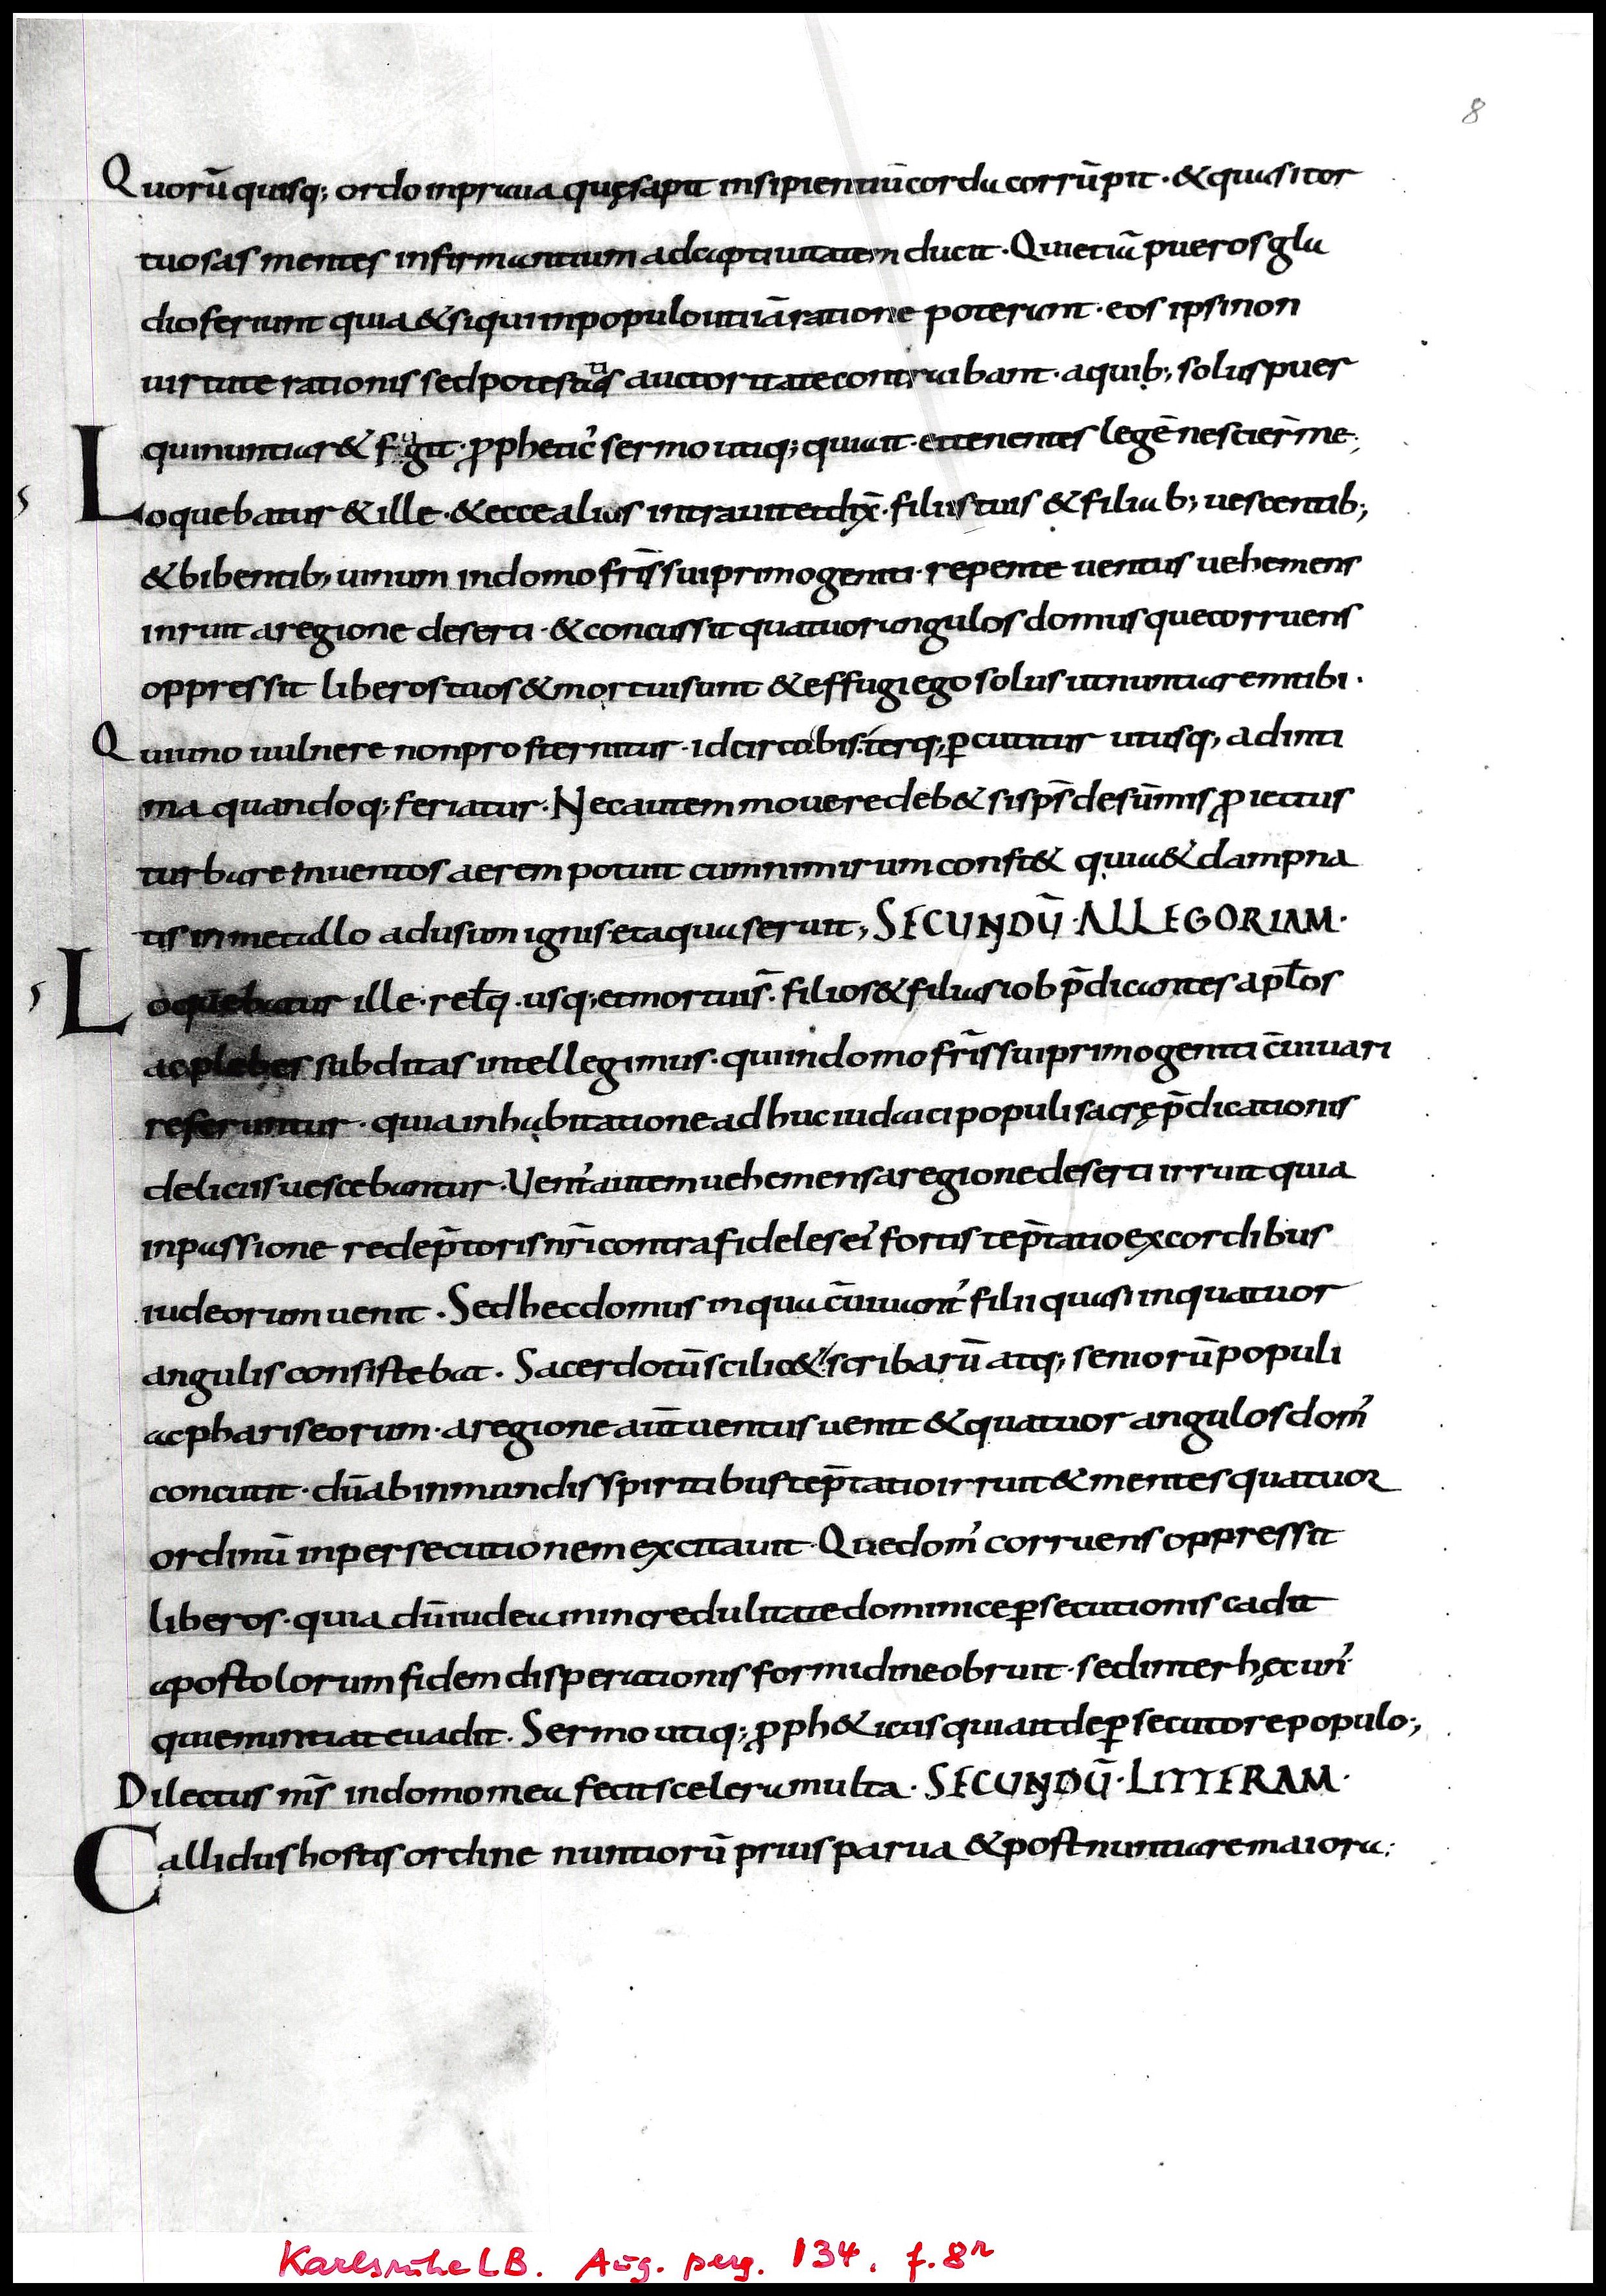 8
Quorū quisq; ordo inpraua quę sapit insipientiū corda corrūpit · & quasi tor
tuosas mentes infirmantium ad captiuitatem ducit · Qui etiā pueros gla
dio feriunt quia & si qui in populo uti iā ratione poterant · eos ipsi non
uirtute rationis sed potestatis auctoritate conteribant · a quib; solus puer
qui nuntiar& fugit · ꝓphetic᾽ sermo utiq; qui ait · et tenentes legē nescier̄ me;
Loquebatur & ille · & ecce alius intrauit et dix̄ · filiis tuis & filiab; uescentib;
& bibentib; uinum in domo fr̄is sui primogeniti · repente uentus uehemens
inruit a regione deserti · & concussit quatuor angulos domus que corruens
oppressit liberos tuos & mortui sunt & effugi ego solus ut nuntiarem tibi ·
Qui uno uulnere non prosternitur · idcirco bis · terq; ꝑcutitur ut usq; ad inti
ma quandoq; feriatur · Nec autem mouere deb& si sps̄ de sūmis ꝓiectus
turbare in uentos aerem potuit cum nimirum const& quia & dampna
tis in metallo ad usum ignis et aqua seruit; SECUNDŪ · ALLEGORIAM ·
Loquebatur ille · relq̄ · usq; et mortui s̄ · filios & filias iob p̄dicantes aplos̄
ac plebes subditas intellegimus · qui in domo fr̄is sui primogeniti c̄uiuari
referuntur · quia in habitatione adhuc iudaici populi sacrę p̄dicationis
deliciis uescebantur · Uent᾽ autem uehemens a regione deserti irruit quia
in passione redēptoris nr̄i contra fideles ei᾽ fortis tēptatio ex cordibus
iudeorum uenit · Sed hec domus in qua c̄uiuant᾽ filii quasi in quatuor
angulis consistebat · Sacerdotū scilic& scribarū atq; seniorū populi
ac phariseorum · a regione aūt uentus uenit & quatuor angulos dom᾽
concutit · dū ab inmundis spiritibus tēptatio irruit & mentes quatuor
ordinū in persecutionem excitauit · Que dom᾽ corruens oppressit
liberos · quia dū iudea in incredulitate dominice ꝑsecutionis cadit
apostolorum fidem disperationis formidine obruit · sed inter hęc un᾽
qui enuntiat euadit · Sermo utiq; ꝓph&icus qui ait de ꝑsecutore populo;
Dilectus ms̄ in domo mea fecit scelera multa · SECUNDŪ · LITTERAM ·
Callidus hostis ordine nuntiorū prius parua & post nuntiare maiora;
Karlsruhe LB. Aug. perg. 134. f. 8r